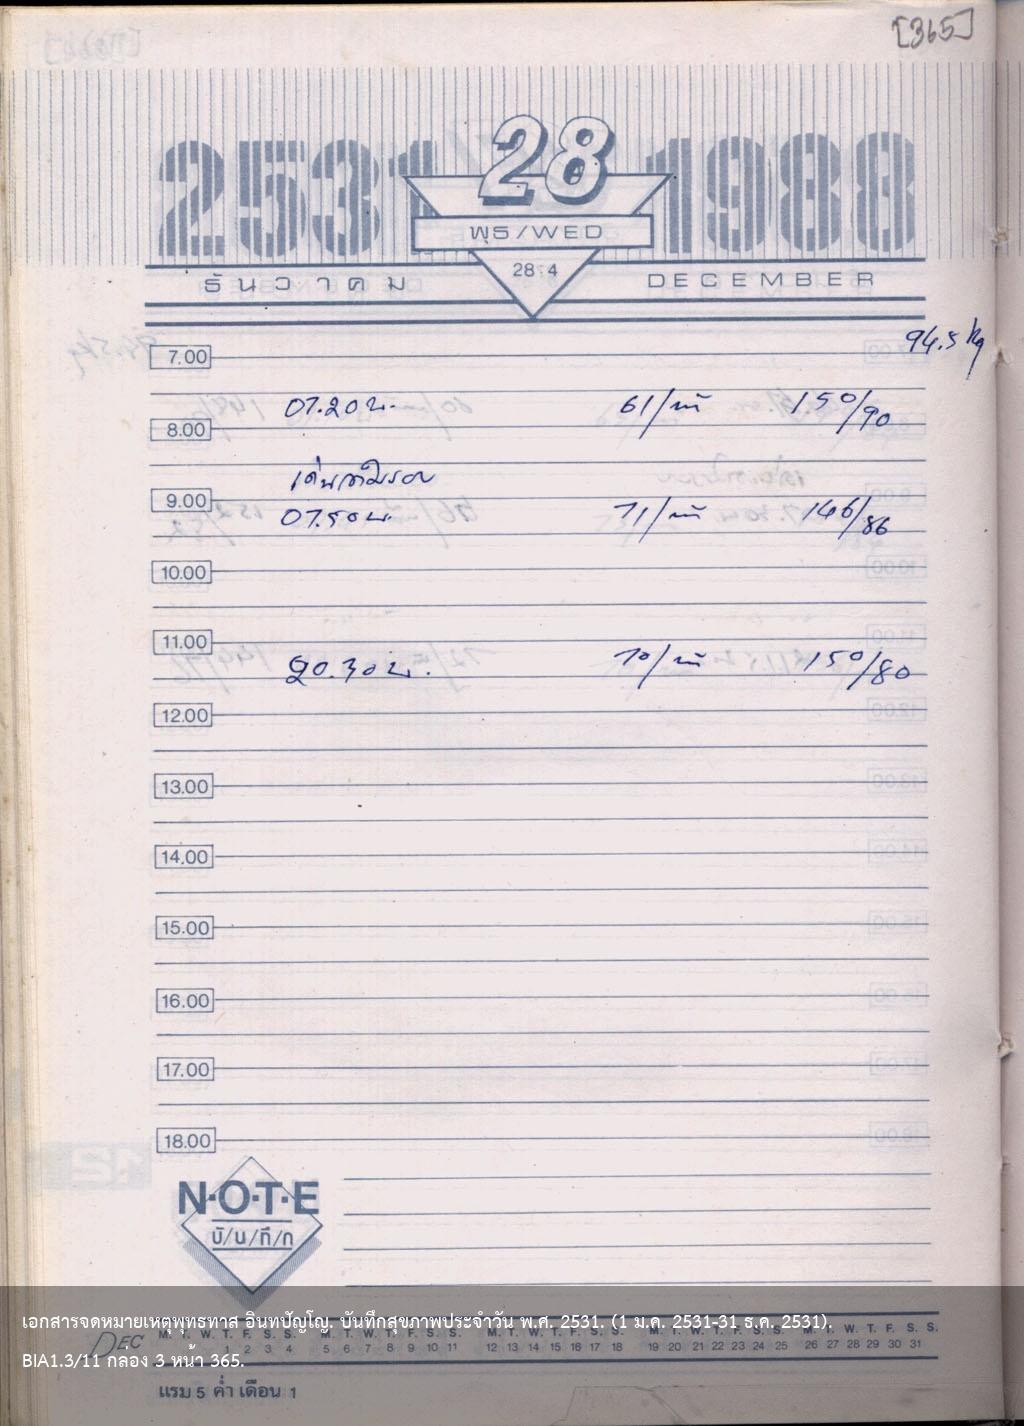 [365]
2531 28 1988
พุธ/WED
28 4
ธันวาคม DECEMBER
94.5 kg
7.00
07.20 น. 61/นาที 150/90
8.00
เดินสามรอบ
9.00
07.50 น. 71/นาที 146/86
10.00
11.00
20.30 น. 70/นาที 150/80
12.00
13.00
14.00
15.00
16.00
17.00
18.00
N·O·T·E
บั/น/ทึ/ก
เอกสารจดหมายเหตุพุทธทาส อินทปัญโญ. บันทึกสุขภาพประจำวัน พ.ศ. 2531. (1 ม.ค. 2531-31 ธ.ค. 2531).
DEC M. T. W. T. F. S. S. M. T. W. T. F. S. S. M. T. W. T. F. S. S. M. T. W. T. F. S. S. M. T. W. T. F. S. S.
1 2 3 4 5 6 7 8 9 10 11 12 13 14 15 16 17 18 19 20 21 22 23 24 25 26 27 28 29 30 31
BIA1.3/11 กล่อง 3 หน้า 365.
แรม 5 ค่ำ เดือน 1